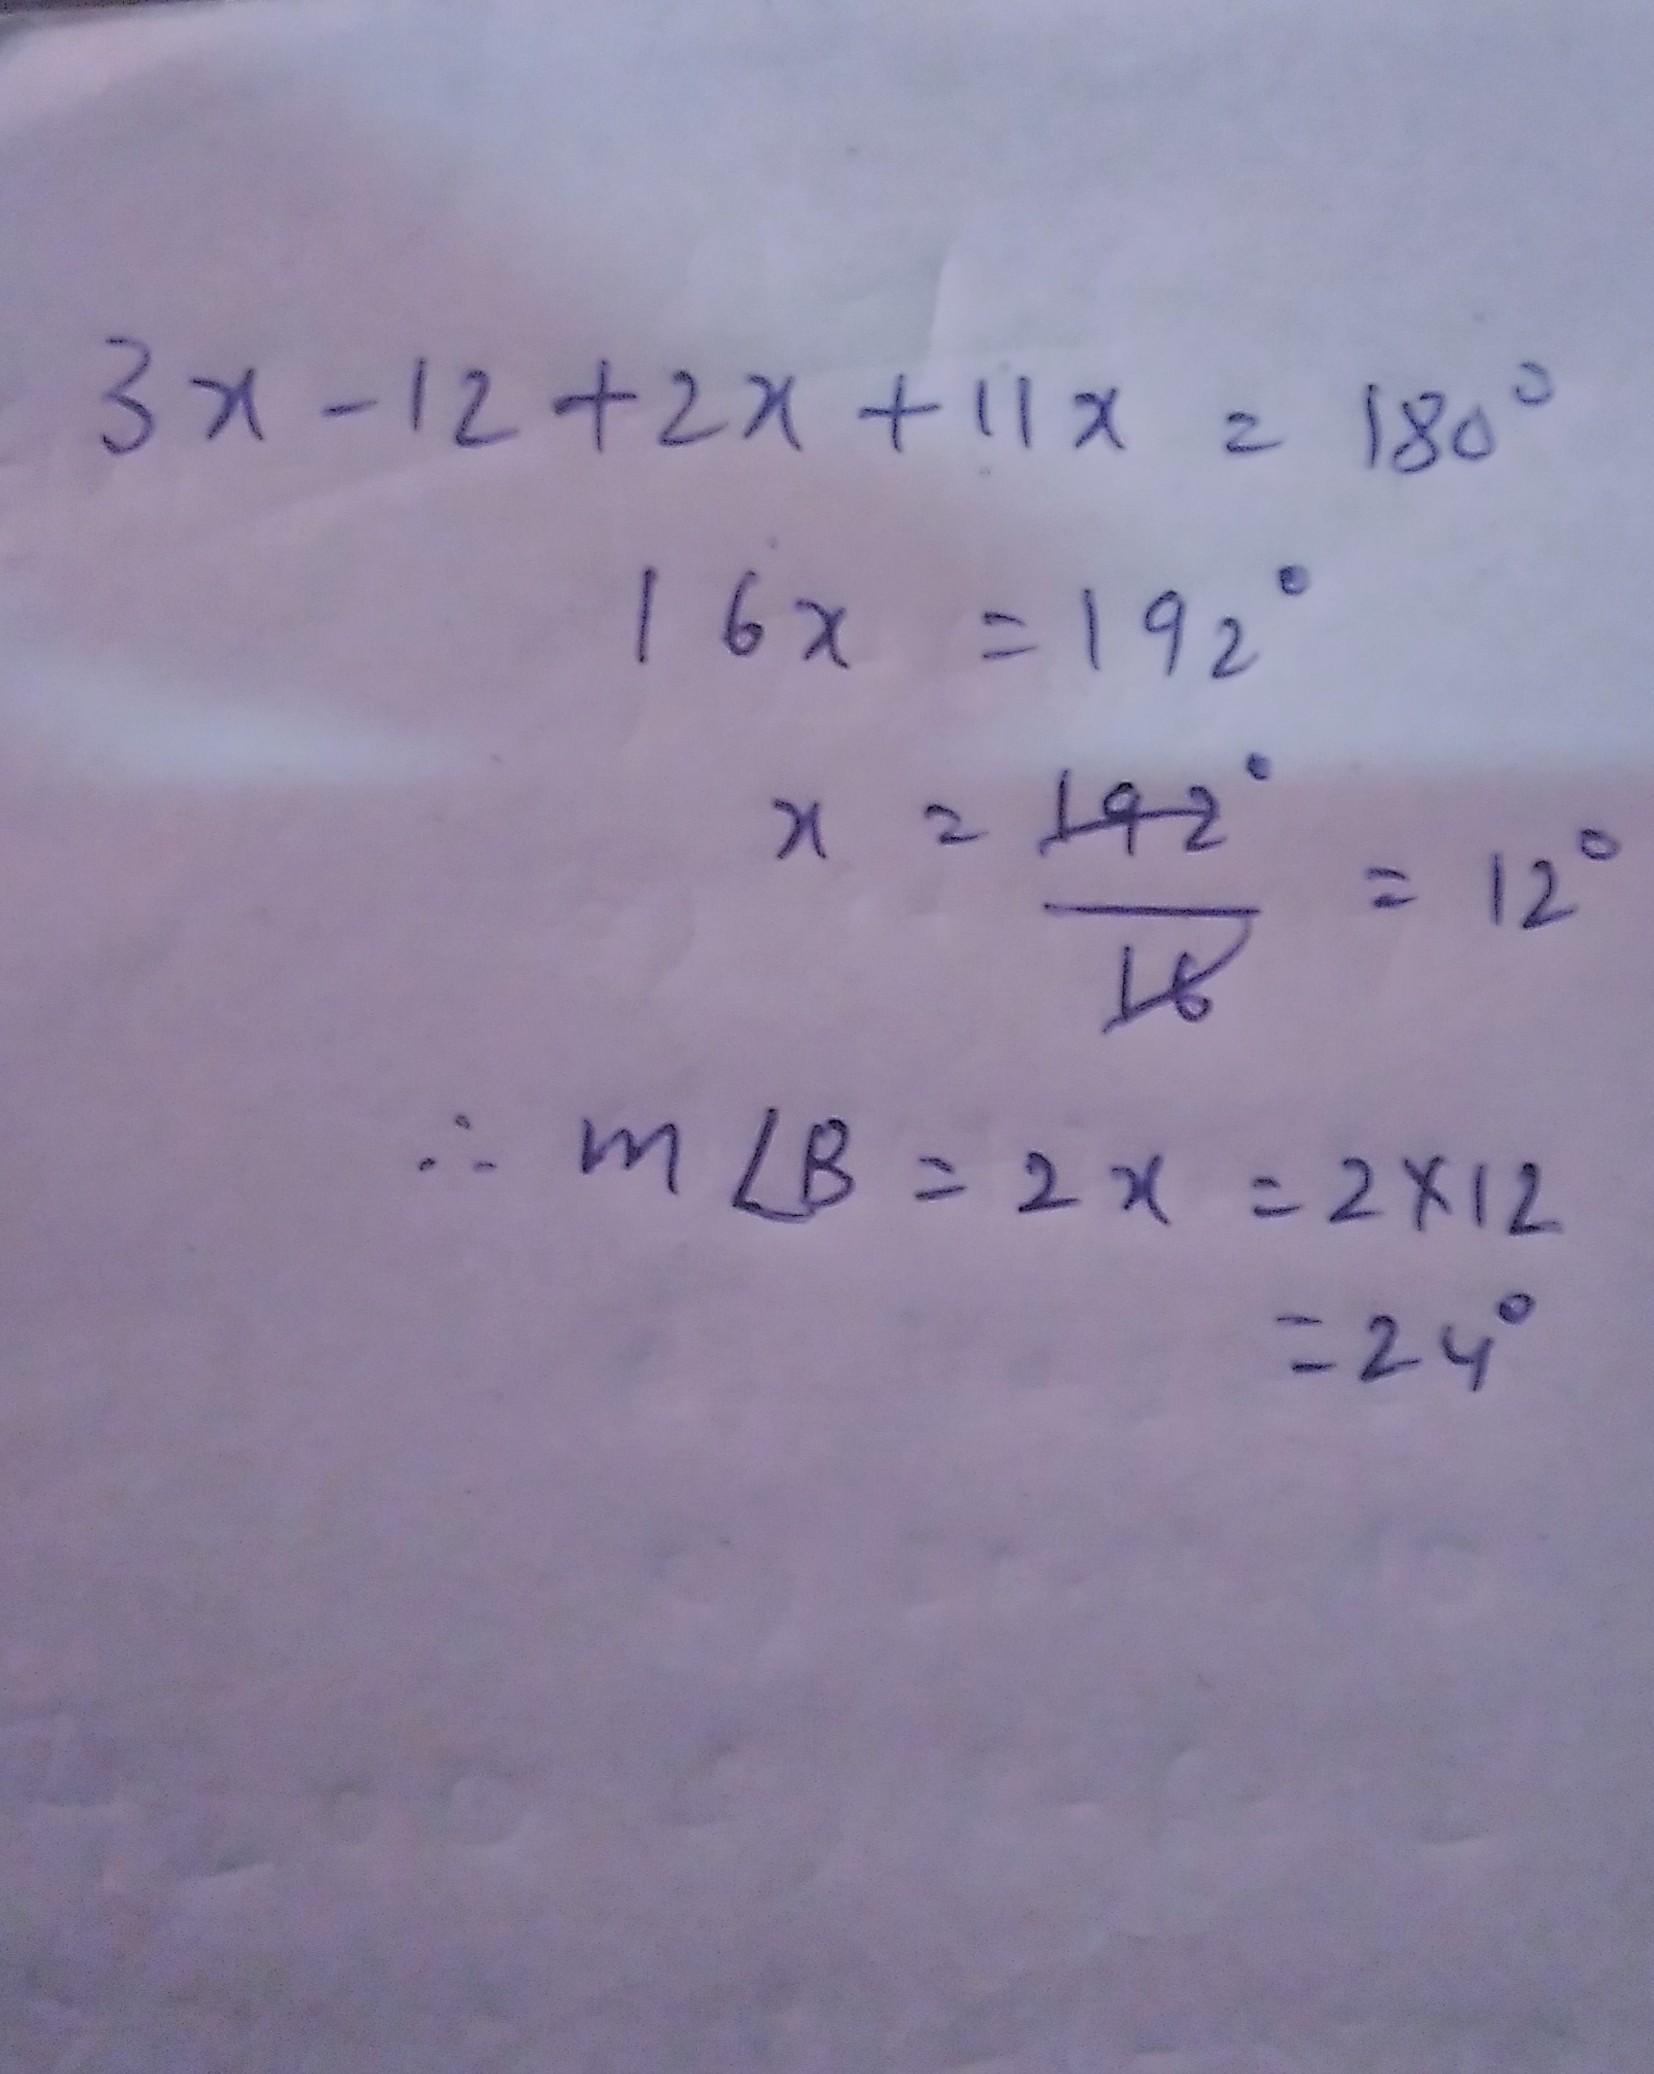 3x - 12 + 2x + 11x = 180°
16x = 192°
x = 192°/16 = 12°
∴ m∠B = 2x = 2×12
= 24°